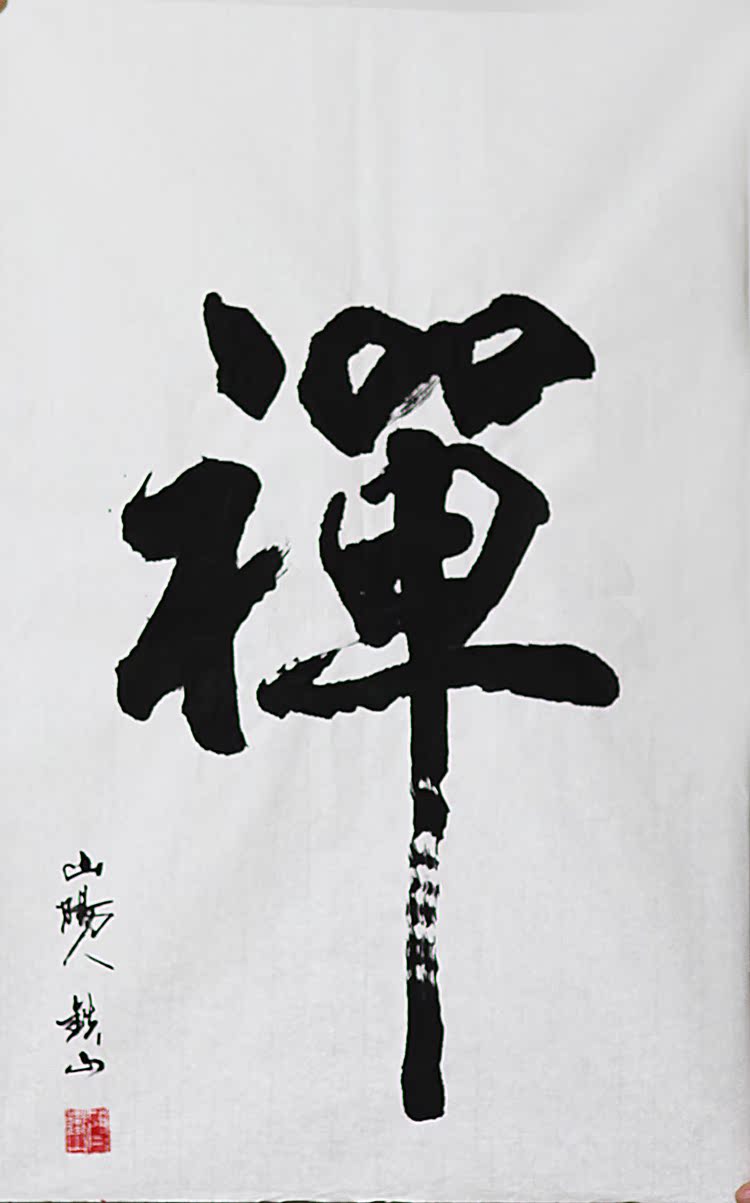 禪
山陽人 鐵山